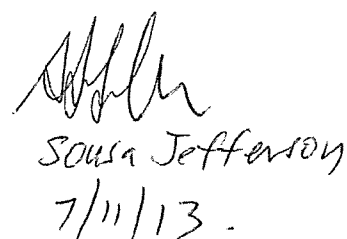 Sousa Jefferson
7/11/13.